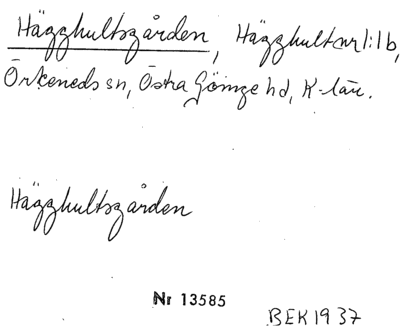 Hägghultsgården, Hägghult nr 1:1 b,
Örkeneds sn, Östra Göinge hd, K-län.
Hägghultsgården
Nr 13585
BEK 1937